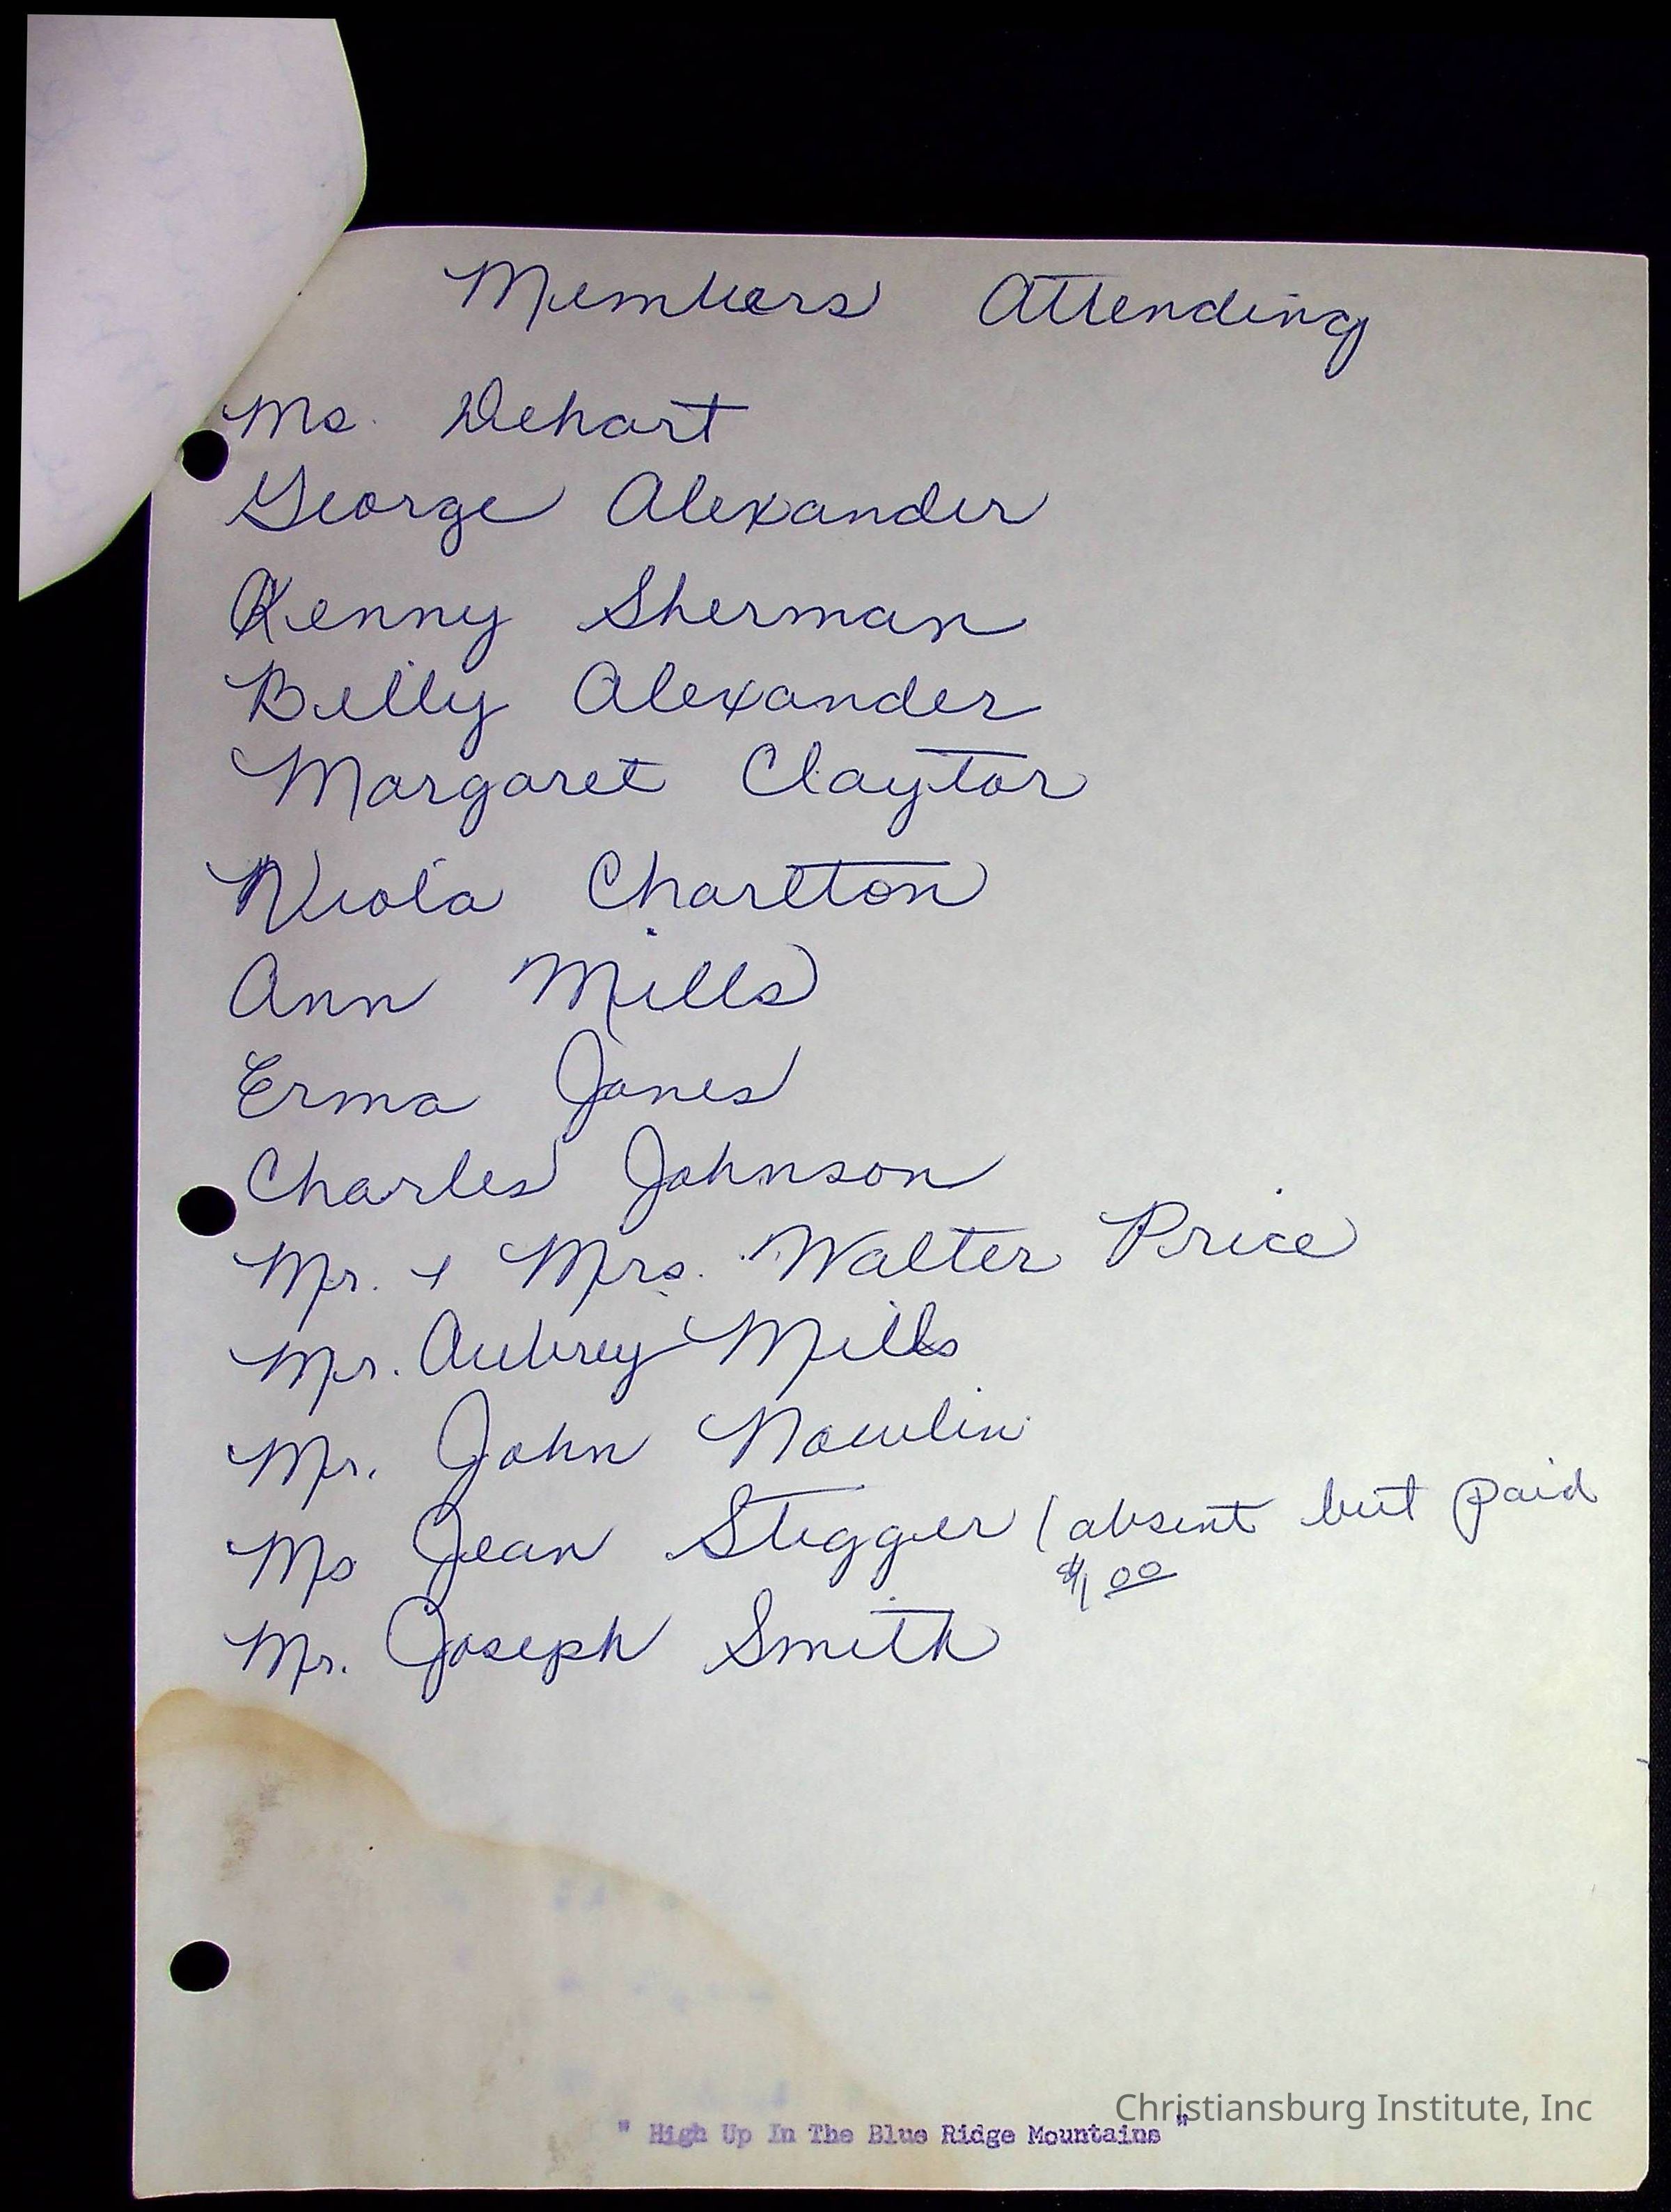 Members Attending
Ms. Dehart
George Alexander
Kenny Sherman
Billy Alexander
Margaret Claytor
Viola Charlton
Ann Mills
Erma Jones
Charles Johnson
Mr. & Mrs. Walter Price
Mr. Aubrey Mills
Mr. John Nowlin
Ms Jean Stegger (absent but paid
$1.00
Mr. Joseph Smith
Christiansburg Institute, Inc
" High Up In The Blue Ridge Mountains "